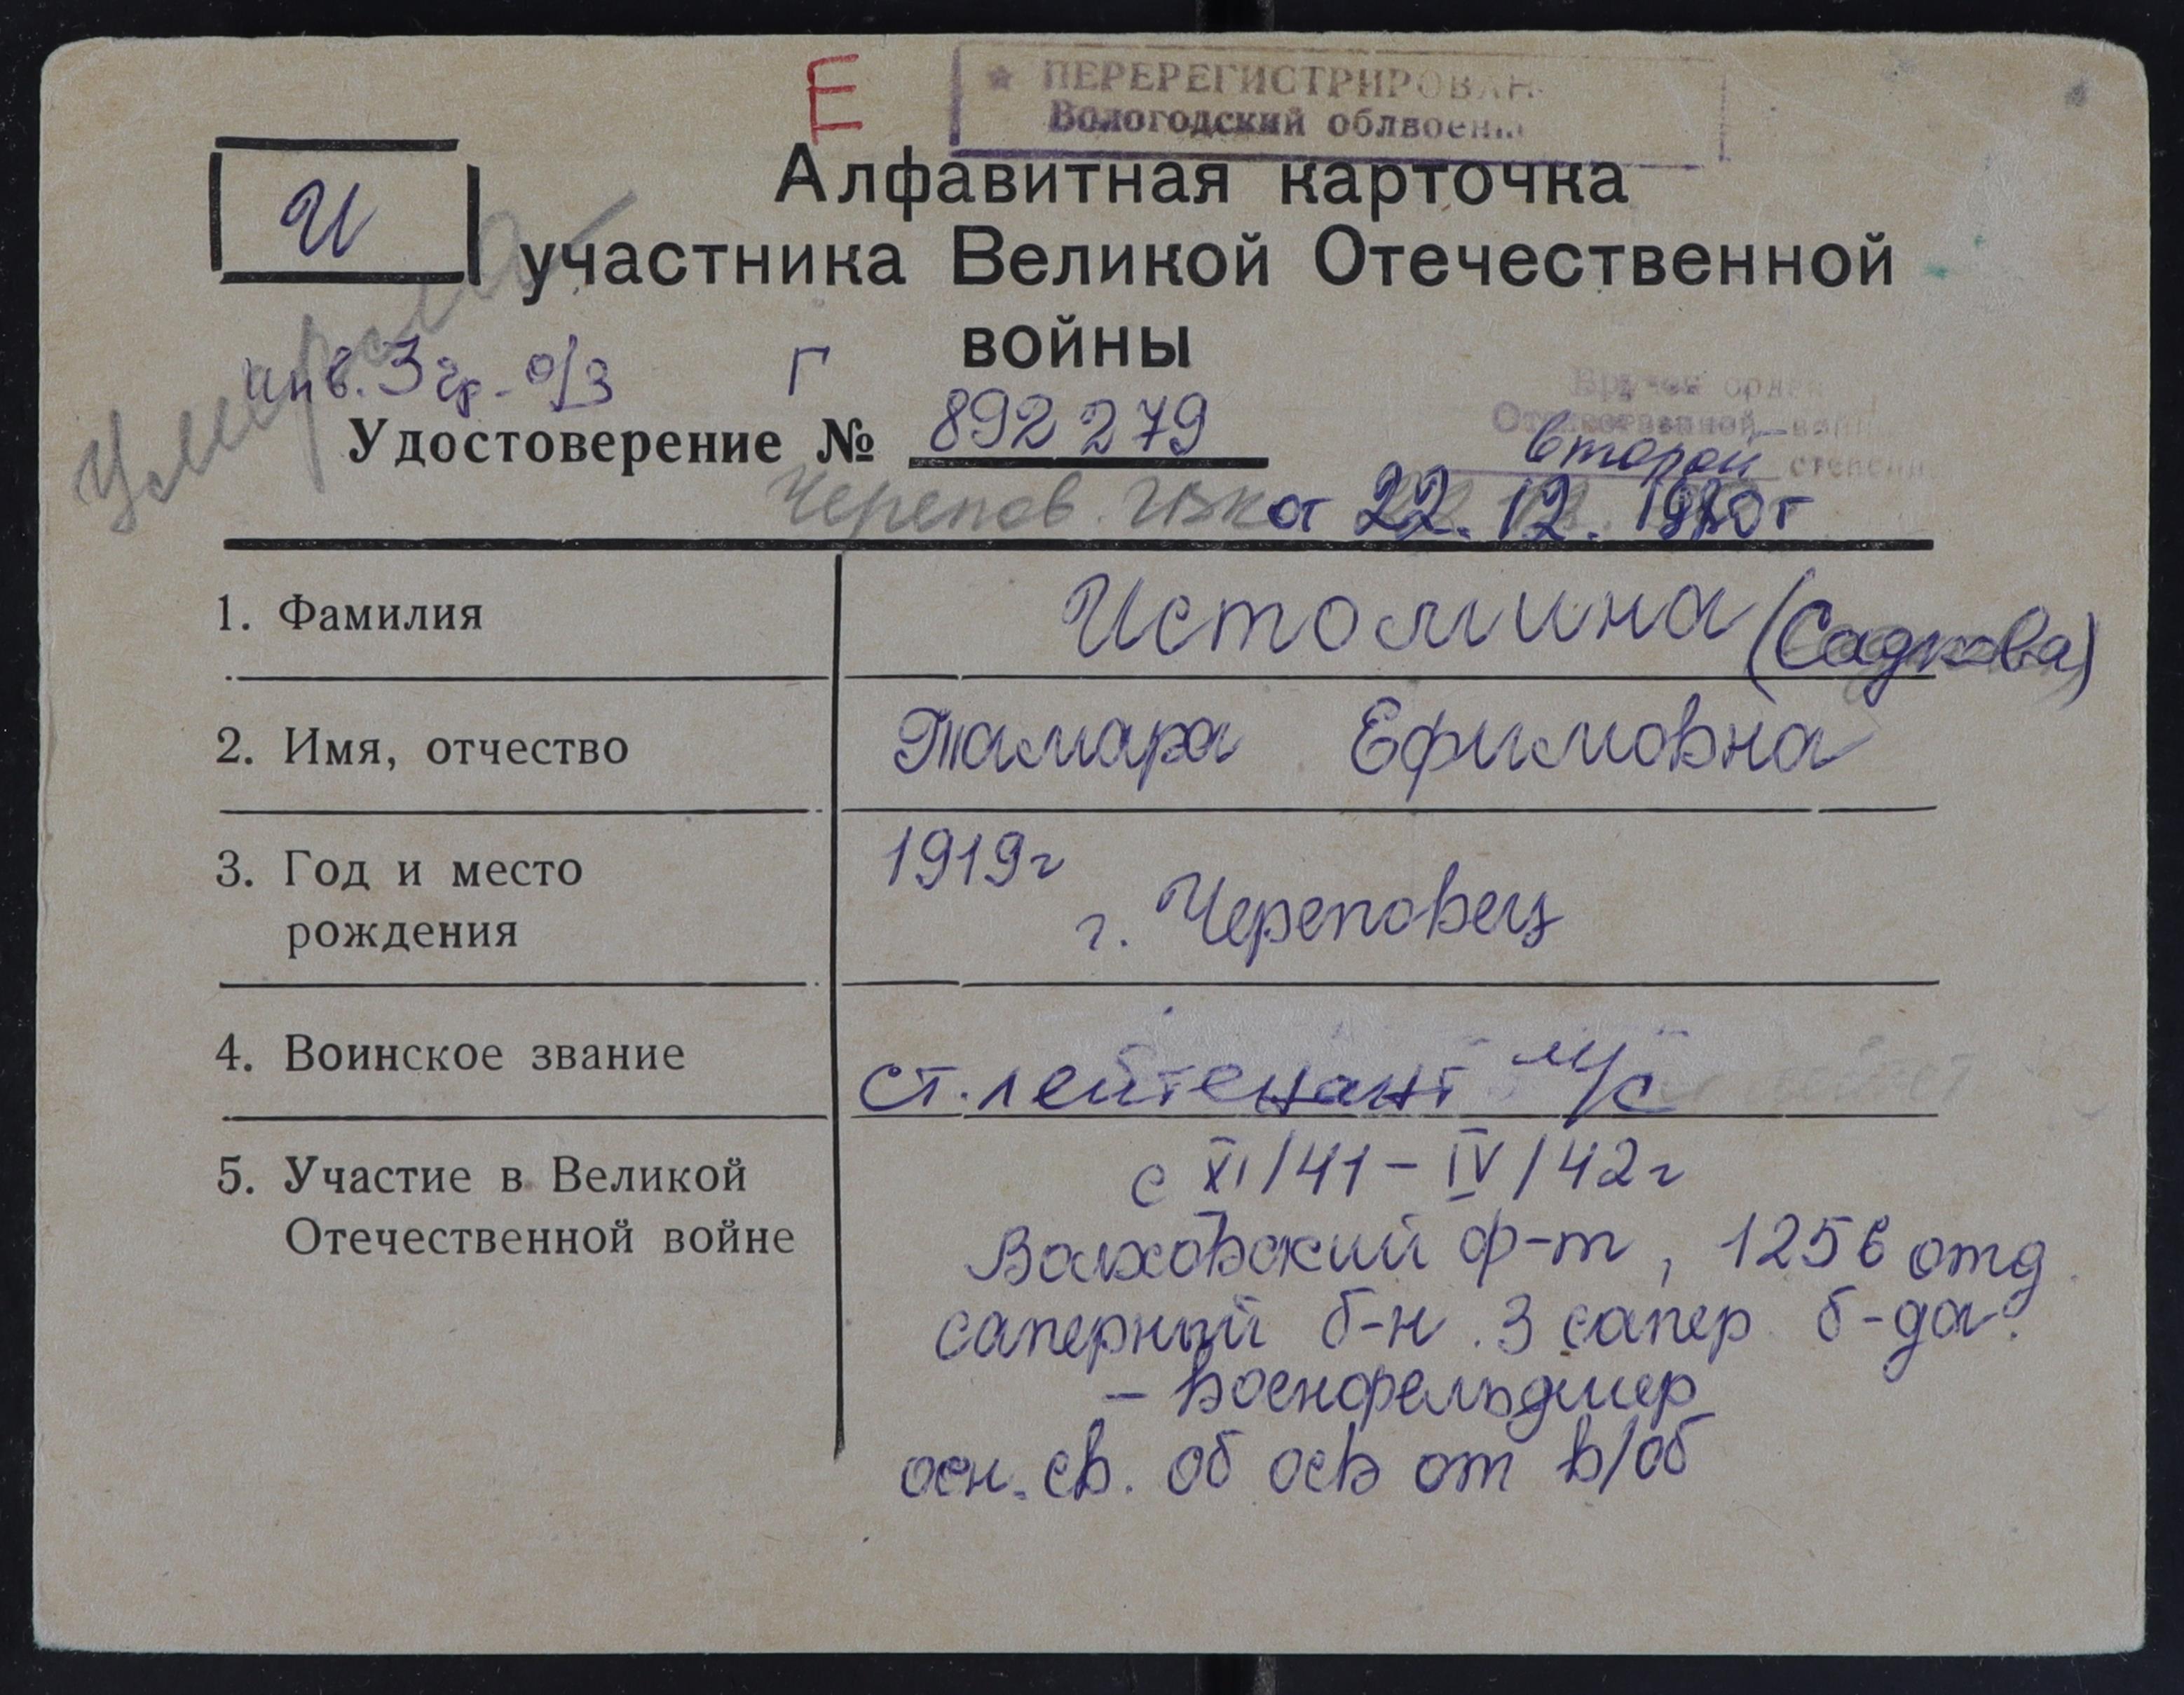 Е
ПЕРЕРЕГИСТРИРОВАН
Вологодский облвоенк
Алфавитная карточка
И
участника Великой Отечественной
войны
Умерла
инв. 3 гр. о/з Г
Удостоверение № 892279
Вручен орден
Отечественной войны
второй степени
Черепов. ГВК от 22.12.1980 г
1. Фамилия Истомина (Садкова)
2. Имя, отчество Тамара Ефимовна
3. Год и место 1919г
рождения г. Череповец
4. Воинское звание ст. лейтенант м/с
5. Участие в Великой с XI/41 – IV/42г
Отечественной войне Волховский ф-т, 1256 отд
саперный б-н. 3 сапер б-да.
– военфельдшер
осн. св. об осв от в/об